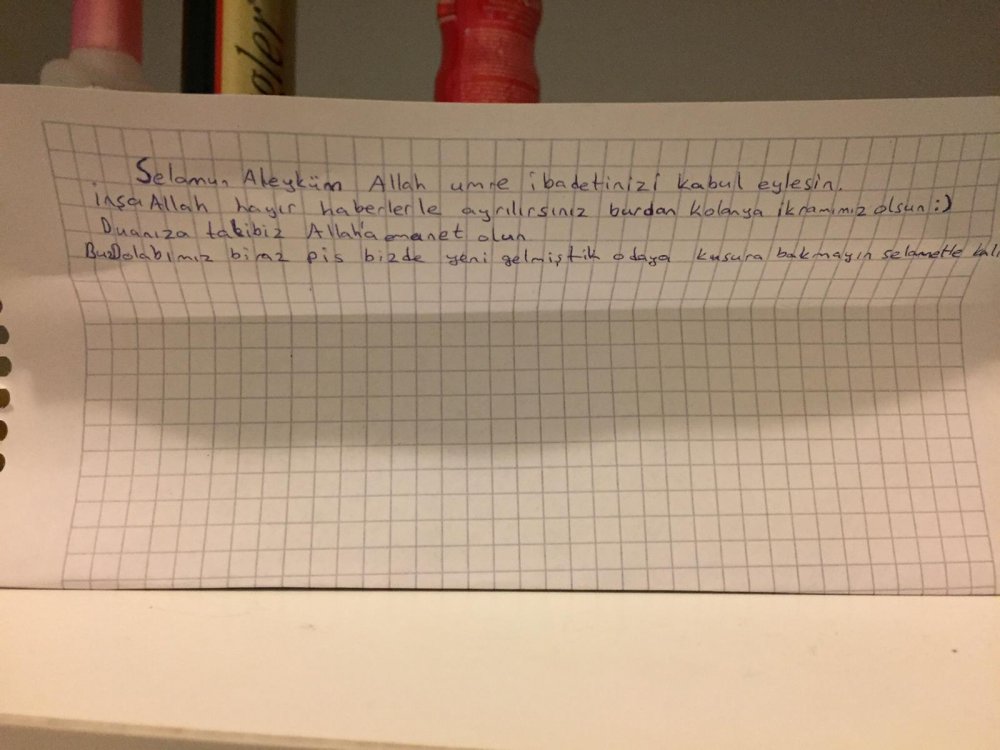 oler
Selamun Aleyküm Allah umre ibadetinizi kabul eylesin.
inşaAllah hayır haberlerle ayrılırsınız burdan Kolonya ikramımız olsun :)
Duanıza talibiz Allah'a emanet olun
BuzDolabımız biraz pis bizde yeni gelmiştik odaya kusura bakmayın selametle kalı